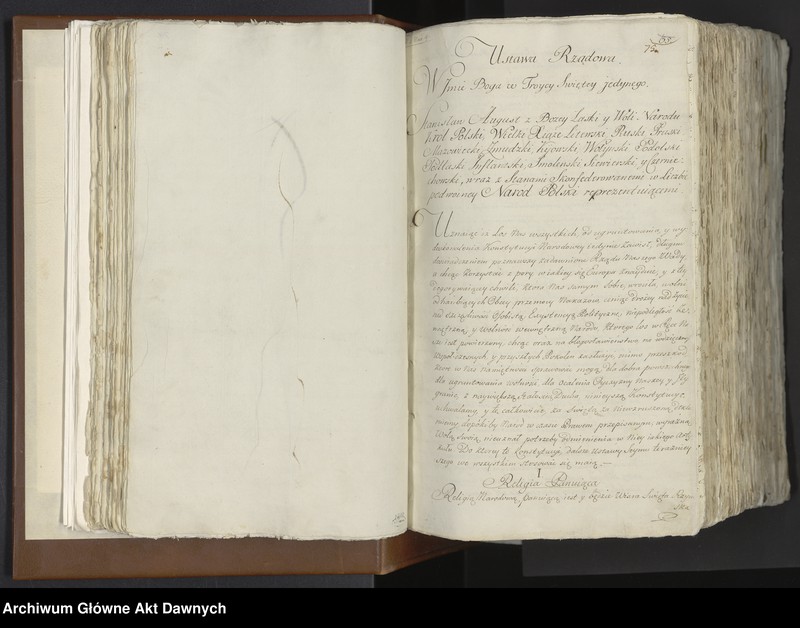 75
Ustawa Rządowa.
W Imie Boga w Troycy Swiętey jedynego.
Stanisław August z Bożey Łaski y Woli Narodu
Król Polski, Wielki Xiąże Litewski, Ruski, Pruski
Mazowiecki, Żmudzki, Kijowski, Wołyński, Podolski
Podlaski, Inflantski, Smoleński, Siewierski, y Czernie-
chowski, wraz z Stanami Skonfederowanemi w Liczbie
podwoyney Narod Polski reprezentuiącemi
Uznaiąc iż Los Nas wszystkich, od ugruntowania y wy-
doskonalenia Konstytucyi Narodowey iedynie zawisł, długim
doświadczeniem poznawszy zadawnione Rządu Naszego Wady,
a chcąc korzystać z pory w iakiey się Europa znayduie, y z tey
która Nas samym Sobie wróciła, wolni
od hańbiących Obcey przemocy Nakazów, ceniąc drożey nad życie
nad szczęśliwość Osobistą, Exystencyą Polityczną, niepodległość ze-
wnętrzną y wolność wewnętrzną Narodu, którego los w ręce Na-
sze iest powierzony, chcąc oraz na błogosławieństwo, na wdzięczność
współczesnych y przyszłych Pokoleń zasłużyć, mimo przeszkód
które w Nas namiętności sprawować mogą, dla dobra powszechnego
dla ugruntowania wolności, dla ocalenia Oyczyzny Naszey y Iey
granic, z naywiększą stałością Ducha ninieyszą Konstytucyę
uchwalamy, y tę całkowicie za Swiętą, za niewzruszoną
dopókiby Naród w czasie Prawem przepisanym, wyraźną
Wolą swoią, nieuznał potrzeby odmienienia w Niey iakiego Arty-
kułu. Do którey to Konstytucyi dalsze Ustawy Seymu teraźniey-
szego we wszystkim stosować się maią.—
I
Religia Panuiąca
Religią Narodową panuiącą iest y będzie Wiara Swięta Rzym-
ska
Archiwum Główne Akt Dawnych